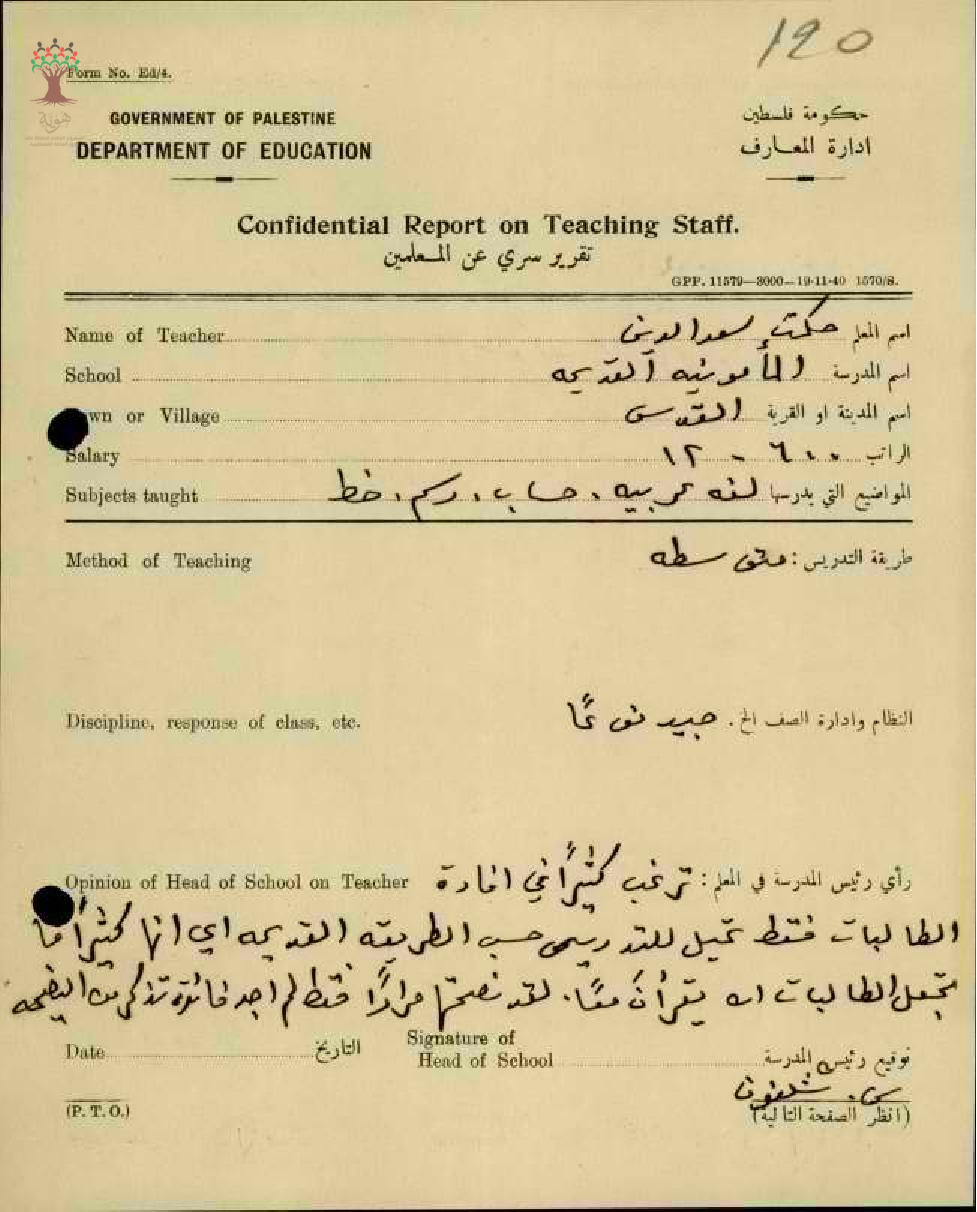 120
Form No. Ed/4.
هوية
GOVERNMENT OF PALESTINE
حكومة فلسطين
DEPARTMENT OF EDUCATION
ادارة المعارف
Confidential Report on Teaching Staff.
تقرير سري عن المعلمين
GPP. 11579—3000—19-11-40 1570/S.
Name of Teacher اسم المعلم حكمت سعد الدين
School اسم المدرسة المأمونيه القديمه
Town or Village اسم المدينة او القرية القدس
Salary الراتب ٦٠٠ - ١٢
Subjects taught المواضيع التي يدرسها لغه عربيه، حساب، رسم، خط
Method of Teaching طريقة التدريس: متوسطه
Discipline, response of class, etc. النظام وادارة الصف الخ. جيد نوعًا
Opinion of Head of School on Teacher رأي رئيس المدرسة في المعلم: ترغب كثيرًا في افادة
الطالبات فقط تميل للتدريس حسب الطريقه القديمه اي انها كثيرًا ما
تجعل الطالبات ان يقرأن معًا. لقد نصحتها مرارًا فقط لم اجد فائدة تذكر من النصيحه
Date التاريخ Signature of Head of School توقيع رئيس المدرسة
س.
(P. T. O.) (انظر الصفحة التالية)